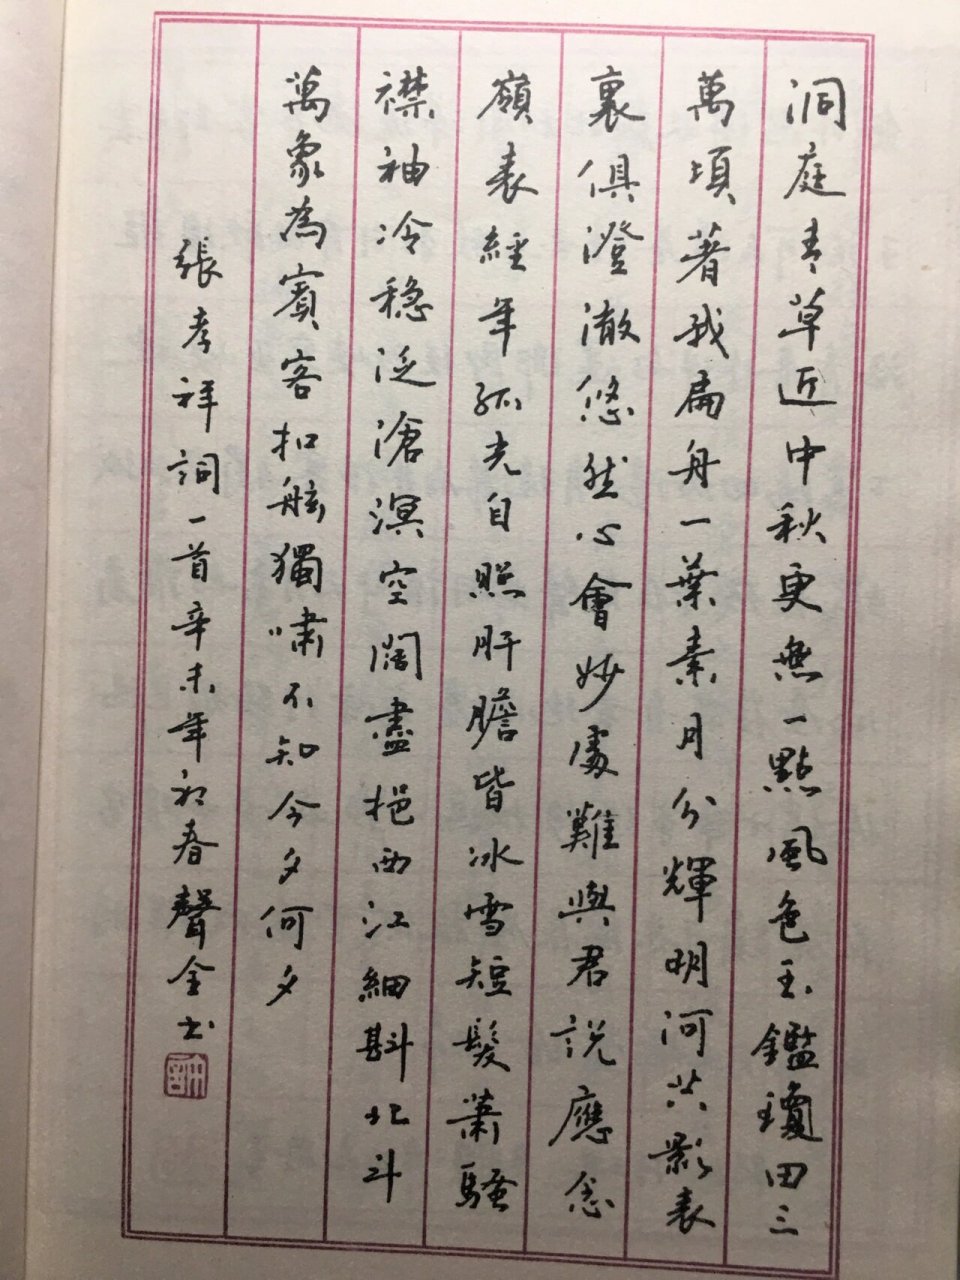 洞庭青草近中秋更無一點風色玉鑑瓊田三
萬頃著我扁舟一葉素月分輝明河共影表
裏俱澄澈悠然心會妙處難與君説應念
嶺表經年孤光自照肝膽皆冰雪短髮蕭騷
襟袖冷穩泛滄溟空闊盡挹西江細斟北斗
萬象為賓客扣舷獨嘯不知今夕何夕
張孝祥詞一首辛未年初春聲全书